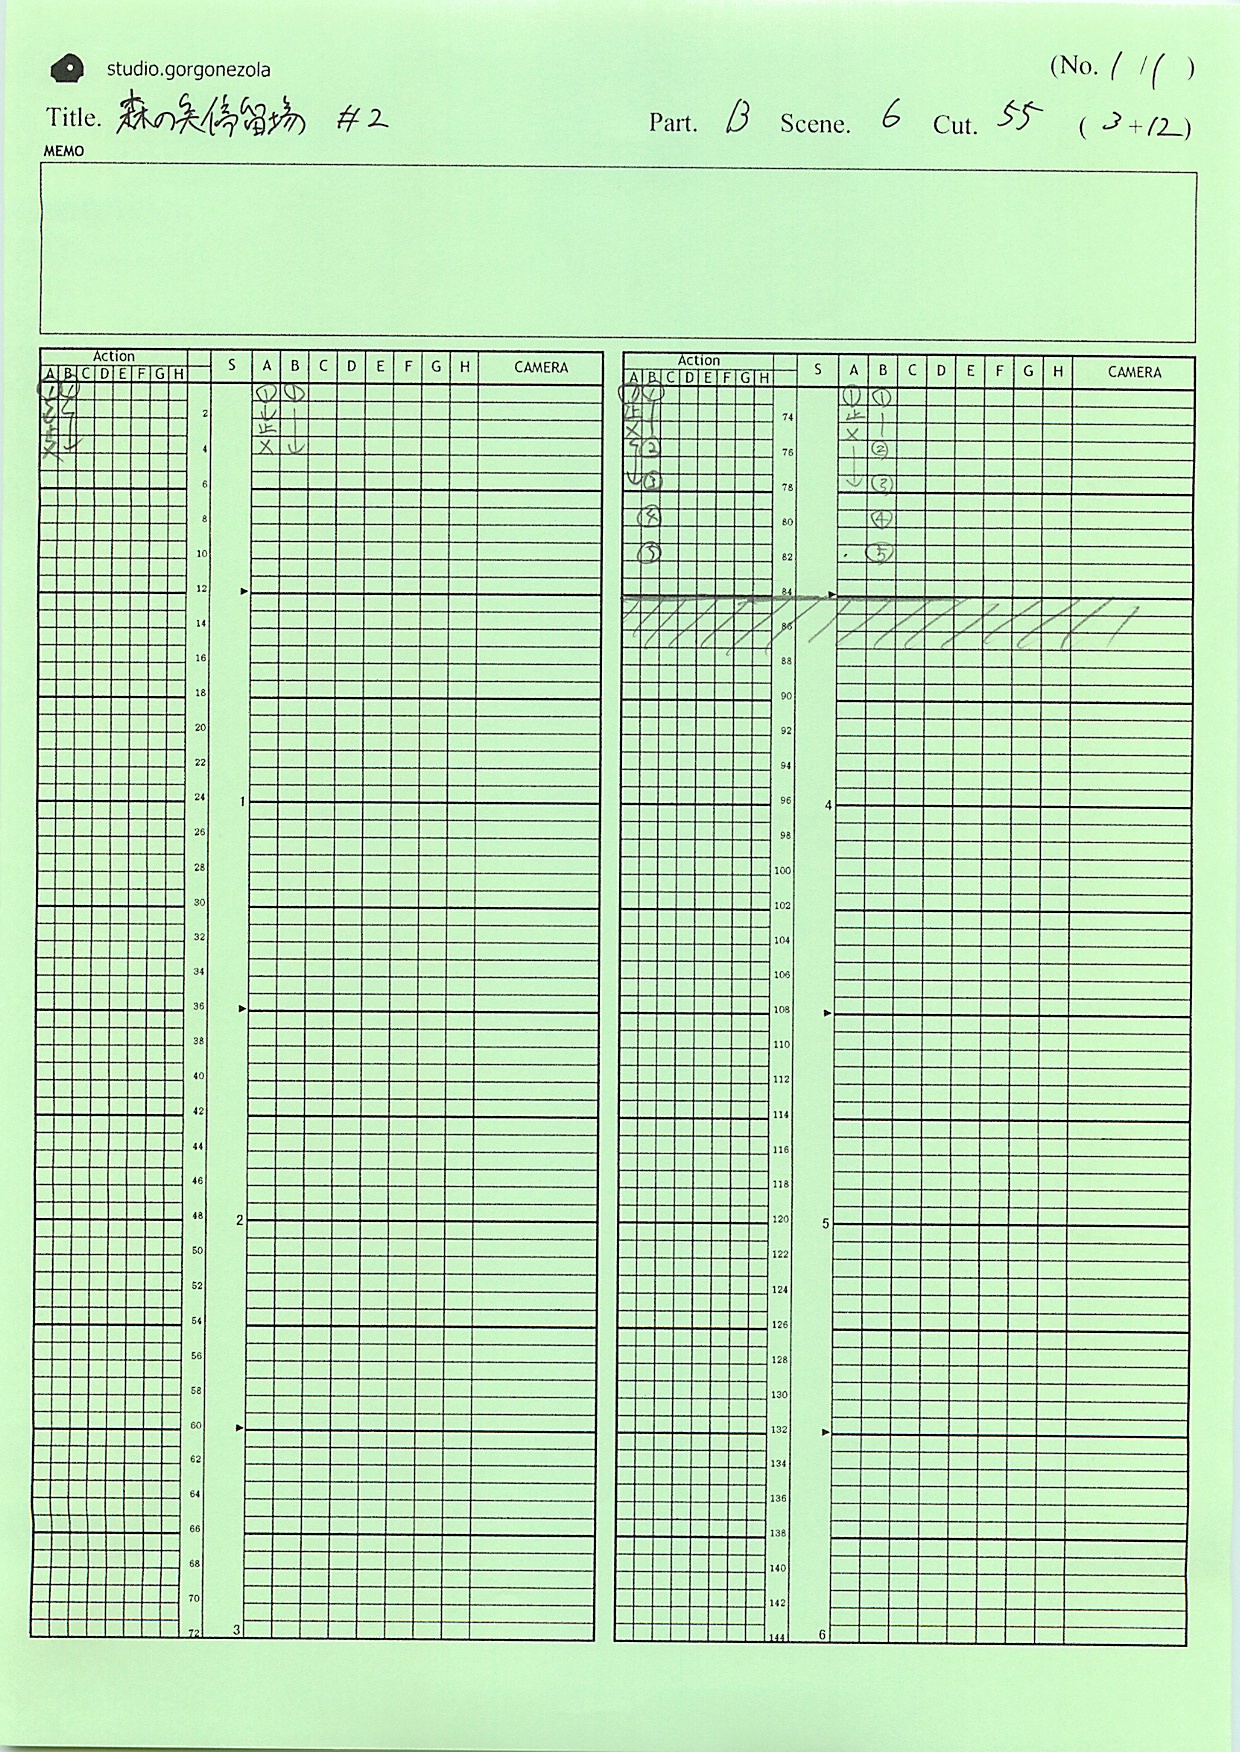 studio.gorgonezola
(No. 1 /1 )
Title. 森の矣停留場 #2 Part. B Scene. 6 Cut. 55 ( 3+12)
MEMO
Action
A B C D E F G H S A B C D E F G H CAMERA
① ① ① ①
2
止 止
4 × ×
6
8
10
12
14
16
18
20
22
24 1
26
28
30
32
34
36
38
40
42
44
46
48 2
50
52
54
56
58
60
62
64
66
68
70
72 3
Action
A B C D E F G H S A B C D E F G H CAMERA
① ① ① ①
止 74 止
× ×
② 76 ②
③ 78 ③
④ 80 ④
⑤ 82 ⑤
84
86
88
90
92
94
96 4
98
100
102
104
106
108
110
112
114
116
118
120 5
122
124
126
128
130
132
134
136
138
140
142
144 6